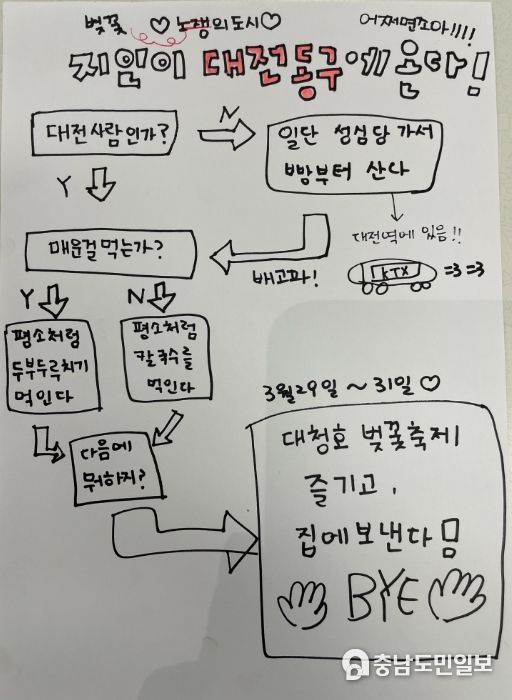 벚꽃
♡ 노잼의도시♡
어쩌면좋아!!!!
지인이 대전동구에온다님
대전사람인가?
N
일단 성심당 가서
빵부터 산다
Y
대전역에 있음!!
KTX =3 =3
매운걸먹는가?
배고파!
Y
N
평소처럼
두부두루치기
먹인다
평소처럼
칼국수를
먹인다
다음에
뭐하지?
3월29일 ~ 31일 ♡
대청호 벚꽃축제
즐기고,
집에보낸다
BYE
충남도민일보